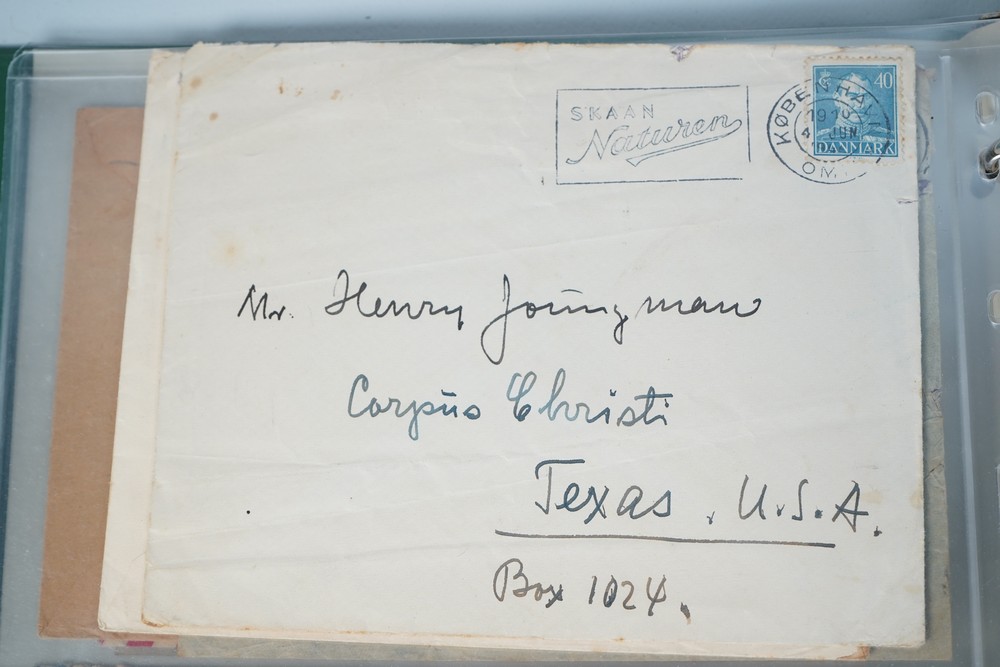 SKAAN
Naturen
KØBENHAVN
19 10
4 JUN
OM.
40
DANMARK
Mr. Henry Joüngman
Corpüs Christi
Texas, U.S.A.
Box 1024.